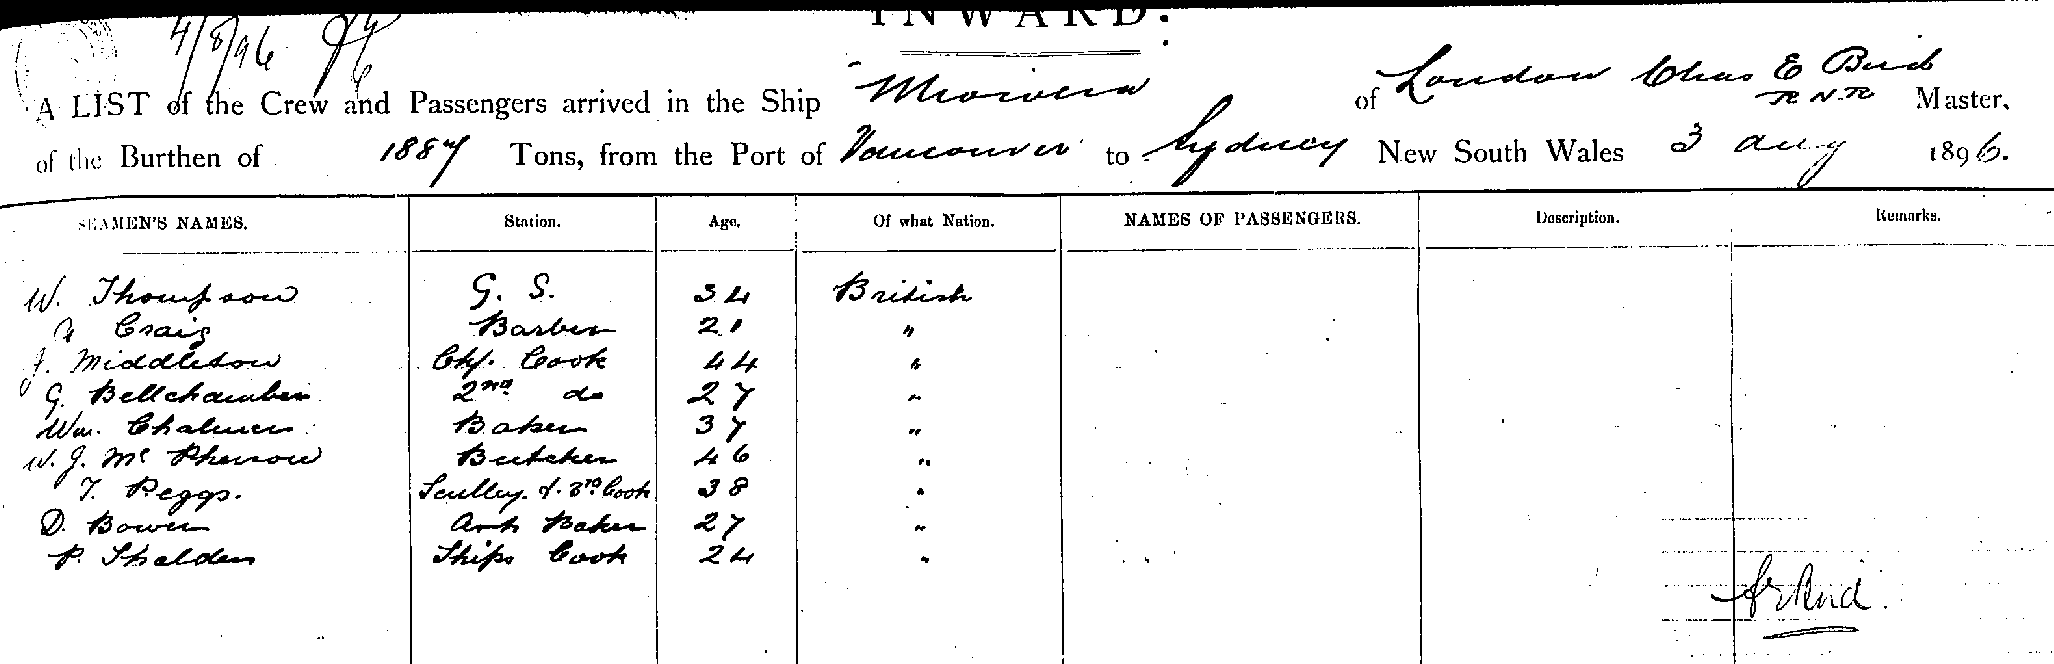 INWARD.
4/8/96
A LIST of the Crew and Passengers arrived in the Ship Miowera of London Chas E Bird RNR Master,
of the Burthen of 1887 Tons, from the Port of Vancouver to Sydney New South Wales 3 Aug 1896.
SEAMEN'S NAMES. Station. Age. Of what Nation. NAMES OF PASSENGERS. Description. Remarks.
W. Thompson G. S. 34 British
Craig Barber 21 "
J. Middleton Chf. Cook 44 "
G. Bellchamber 2nd do 27 "
Wm. Chalmers Baker 37 "
W. J. McPherson Butcher 46 "
T. Peggs. Sculley. & 3rd Cook 38 "
D. Bowen Asst Baker 27 "
P. Shelden Ships Cook 24 "